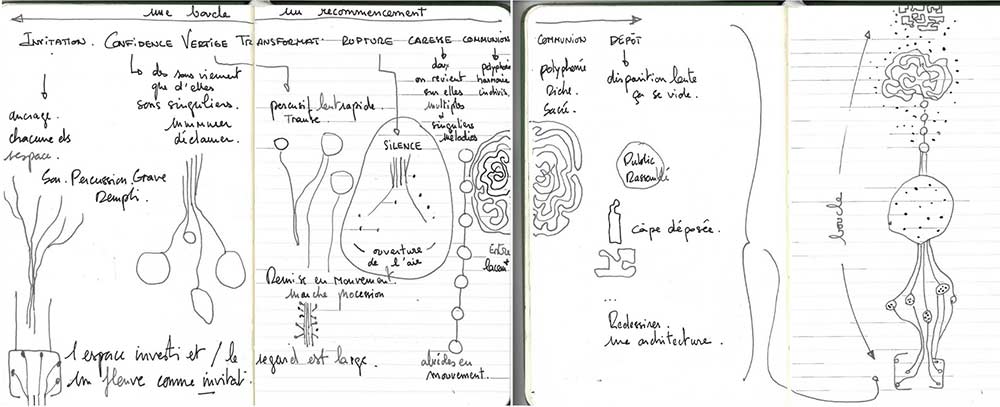 une boucle
un recommencement
INVITATION. CONFIDENCE VERTIGE TRANSFORMAT° RUPTURE CARESSE COMMUNION
ancrage.
chacune ds
l'espace.
ds sons viennent
que d'elles
sons singuliers.
murmurer
déclamer.
Son. Percussion Grave
Rempli.
percussif lent rapide.
Transe
SILENCE
ouverture
de l'aire
doux
on revient
sur elles
multiples
singuliers
mélodies
polyphonie
harmonie
individu.
Entre
lacem^t
Remise en mouvement.
marche procession
l'espace investi et / le regard est large.
un fleuve comme invitat°
alvides en
mouvement.
COMMUNION
polyphonie
Riche.
Sacré.
DÉPÔT
disparition lente
ça se vide.
Public
Rassemblé
cape déposée.
...
Redessiner
une architecture.
boucle